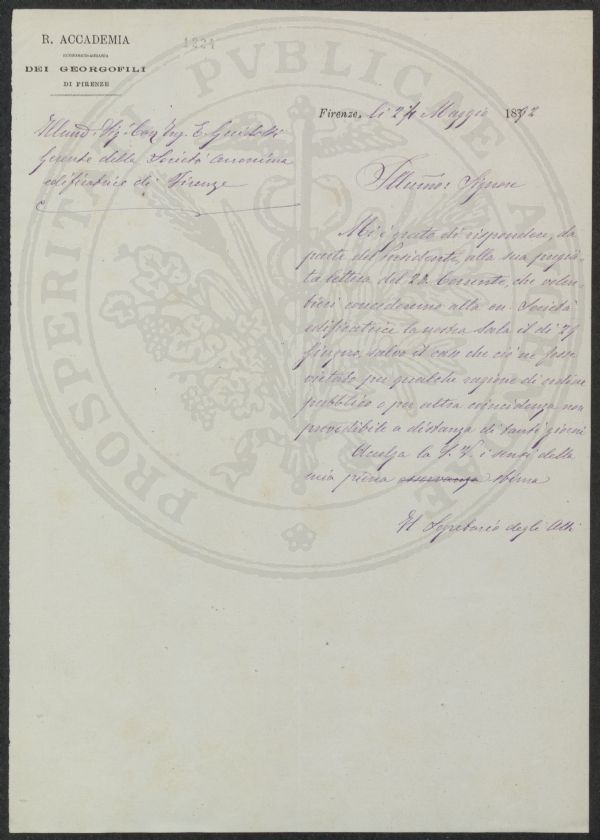 R. ACCADEMIA
ECONOMICO-AGRARIA
DEI GEORGOFILI
DI FIRENZE
1224
Firenze, li 24 Maggio 1892
Illmo Sig. Cav. Ing. E.
Gerente della Società anonima
edificatrice di Firenze
Illmo Signore
Mi è grato di rispondere, da
parte del Presidente, alla sua pregia-
ta lettera del 23 Corrente, che volen-
tieri concederemo alla on. Società
edificatrice la nostra Sala il dì
Giugno, salvo il caso che ciò ne fosse
vietato per qualche ragione di ordine
pubblico o per altra coincidenza non
prevedibile a distanza di tanti giorni
Accolga la S. V. i sensi della
mia piena osservanza stima
Il Segretario degli Atti
PROSPERITATI PUBLICAE AUGENDAE